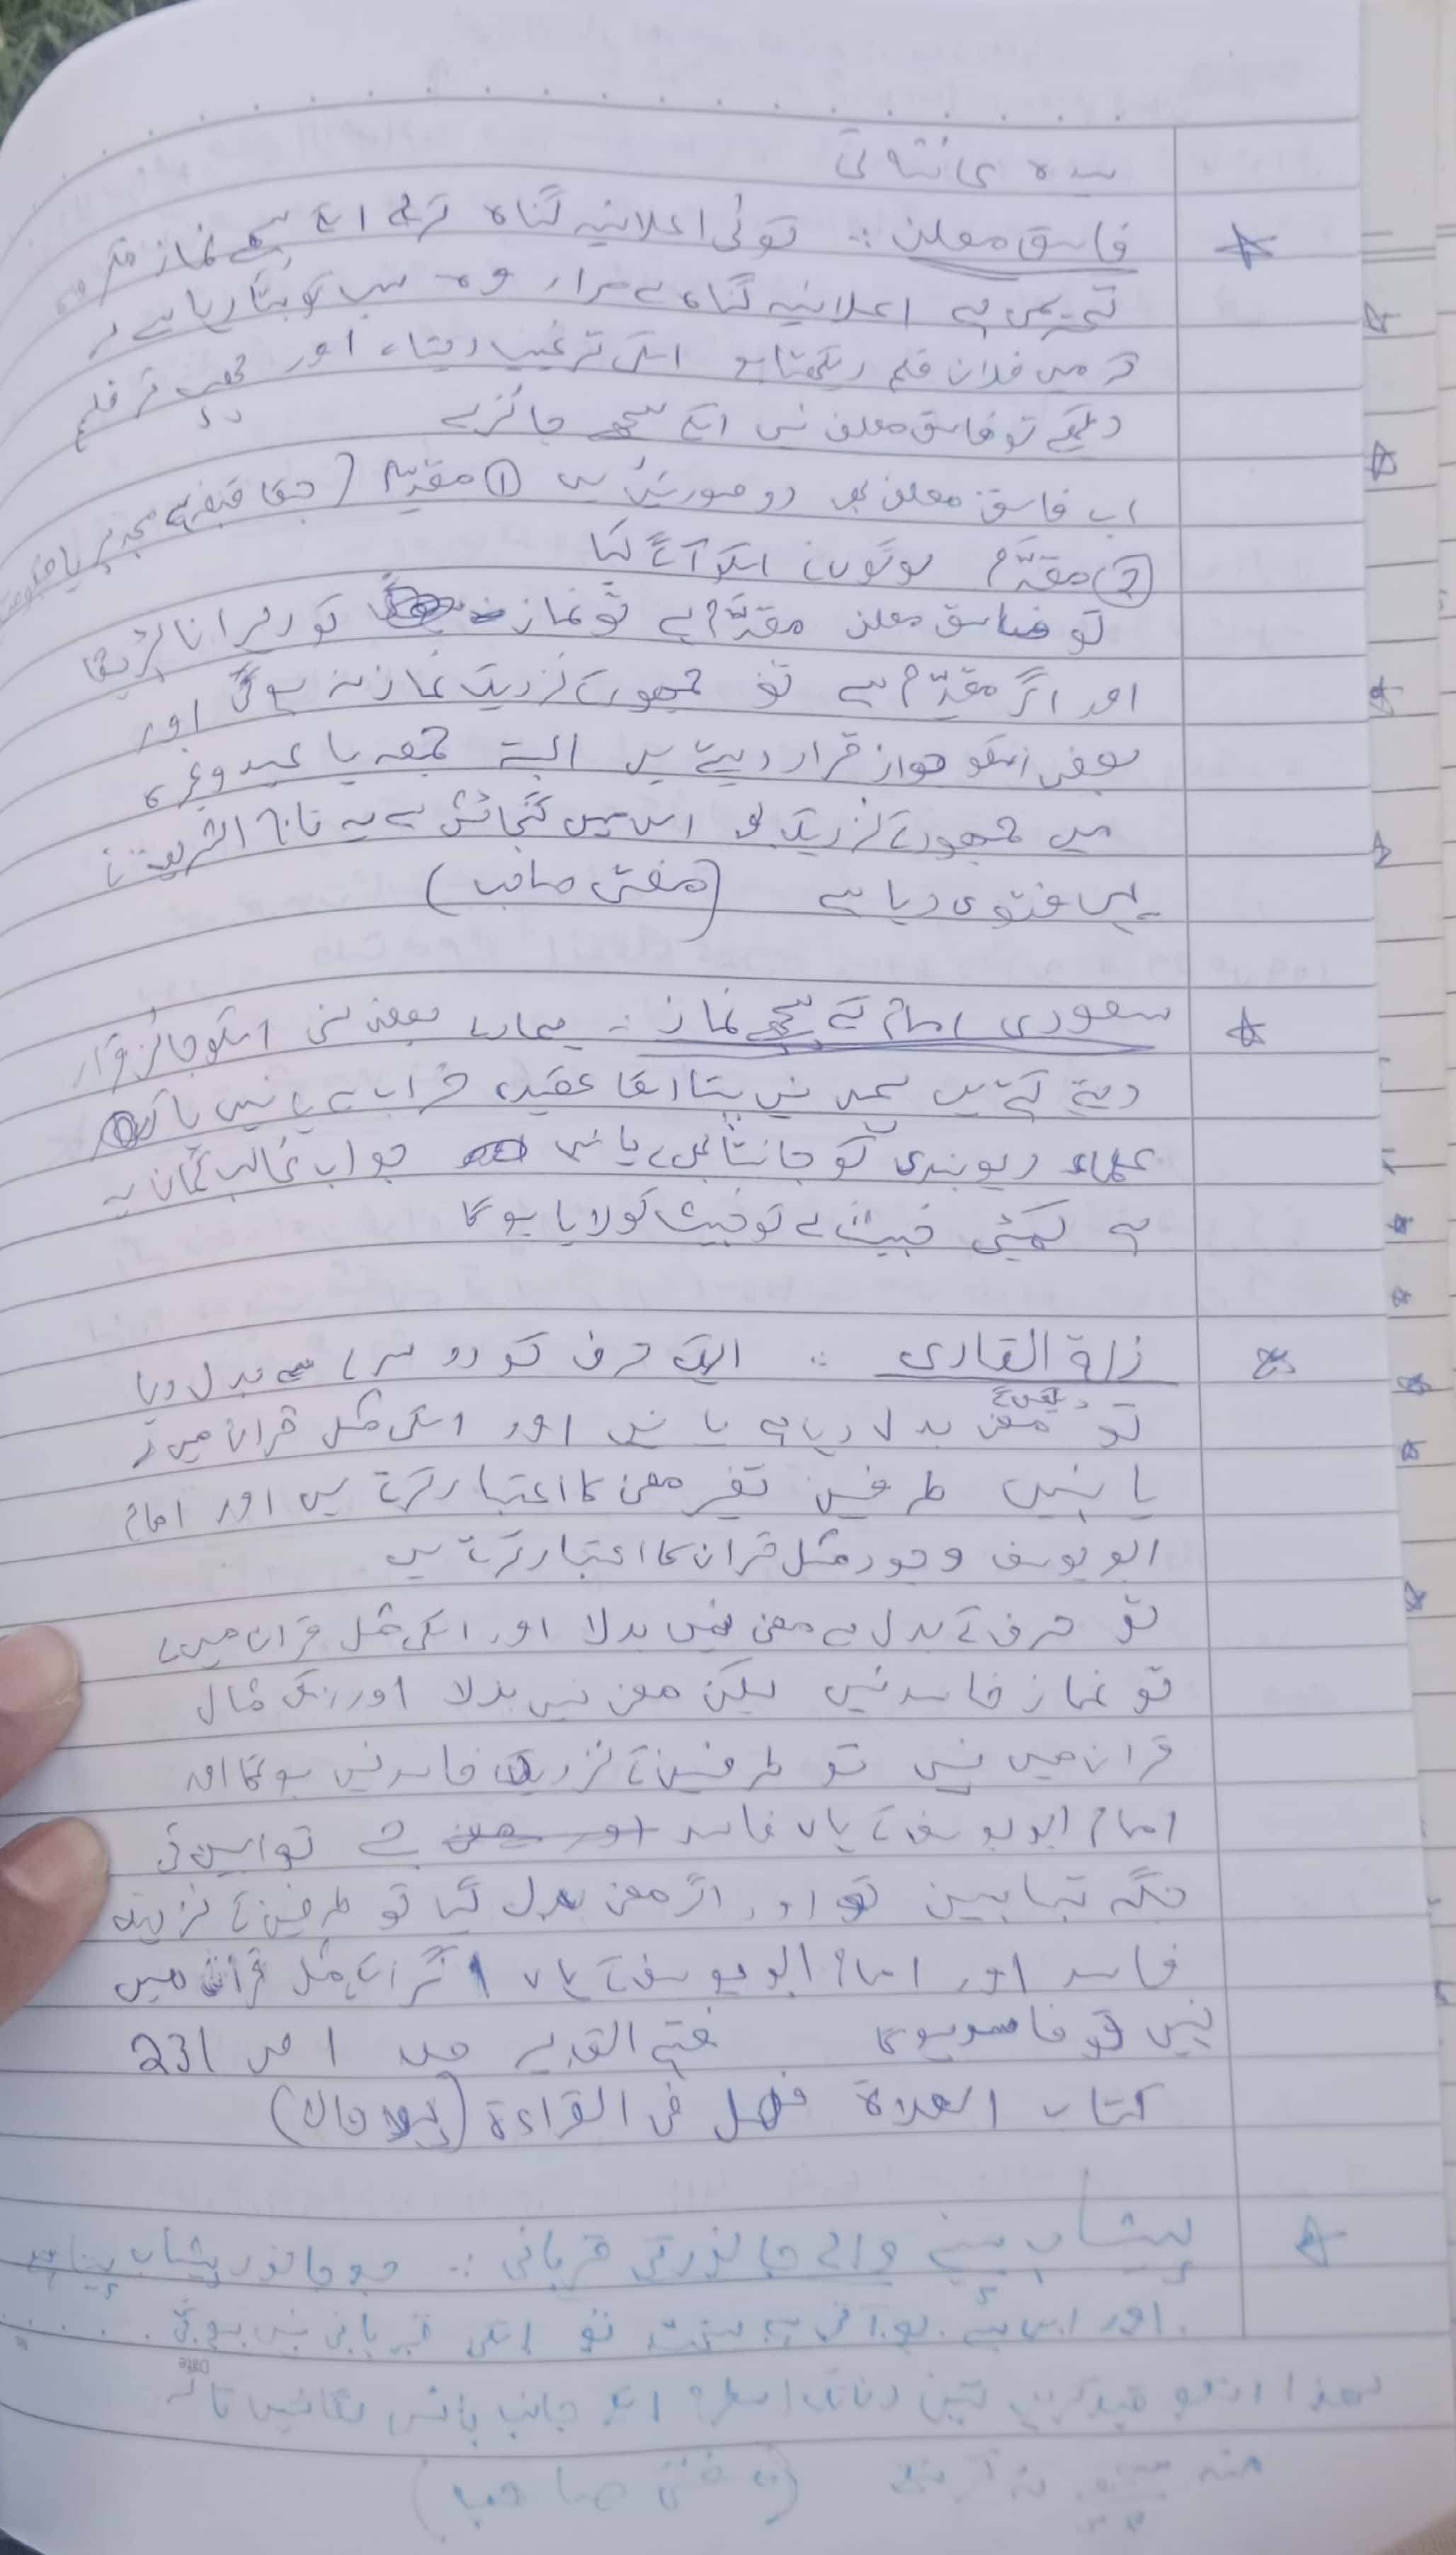 فاسق معلن :. کوئی اعلانیہ گناہ کرے اسکے پیچھے نماز مکروہ
تحریمی ہے اعلانیہ گناہ سے مراد وہ سب کو بتا رہا ہے
کہ میں فلاں فلم دیکھتا ہو اسکی ترغیب دیتا، اور چھپ کر فلم
دیکھے تو فاسق معلن نہیں اسکے پیچھے جائز ہے
اب فاسق معلن کی دو صورتیں ہیں ① مقدِّم (جسکا قبضہ ہے مسجد پر یا
② مقدَّم لوگوں نے اسکو آگے کیا
تو فاسق معلن مقدَّم ہے تو نماز کو دہرانا پڑیگا
اور اگر مقدِّم ہے تو جمہور کے نزدیک نماز نہ ہوگی اور
بعض اسکو جواز قرار دیتے ہیں البتہ جمعہ یا عید وغیرہ
میں جمہور کے نزدیک اس میں گنجائش ہے یہ تاج الشریعہ نے
یہی فتوی دیا ہے (مفتی صاحب)
سعودی امام کے پیچھے نماز :. ہمارے بعض سنی اسکو جائز قرار
دیتے کہتے ہیں ہمیں نہیں پتا اسکا عقیدہ خراب ہے یا نہیں یا
علماء دیوبندی کو جانتا بھی ہے یا نہیں جواب غالب گمان یہ
ہے کمیٹی خبیث ہے تو خبیث کو لایا ہوگا
زلة القاری :. ایک حرف کو دوسرے سے بدل دیا
تو دیکھیں گے معنی بدل رہا ہے یا نہیں اور اسکی مثل قران میں ہے
یا نہیں طرفین تغیر معنی کا اعتبار کرتے ہیں اور امام
ابو یوسف وجود مثل قران کا اعتبار کرتے ہیں
تو حرف کے بدل سے معنی نہیں بدلا اور اسکی مثل قران میں ہے
تو نماز فاسد نہیں لیکن معنی نہیں بدلا اور اسکی مثال
قران میں نہیں تو طرفین کے نزدیک فاسد نہیں ہوگا اور
امام ابو یوسف کے یہاں فاسد ہے تو ابین کی
جگہ تیابین تو اور اگر معنی بدل گیا تو طرفین کے نزدیک
فاسد اور امام ابو یوسف کے یہاں اگر اسکی مثل قرآن میں
نہیں تو فاسد ہوگا فتح القدیر جلد 1 ص 231
کتاب الصلاة فصل فی القراءة
پیشاب پینے والے جانور کی قربانی :. جو جانور پیشاب پیتا ہے
اور اس سے بو آتی ہے تو اسکی قربانی نہیں ہوگی
لھذا اسکو قید کریں تین دن تک جانب بانس لگائیں تاکہ
منہ نہ کر سکے (مفتی صاحب)